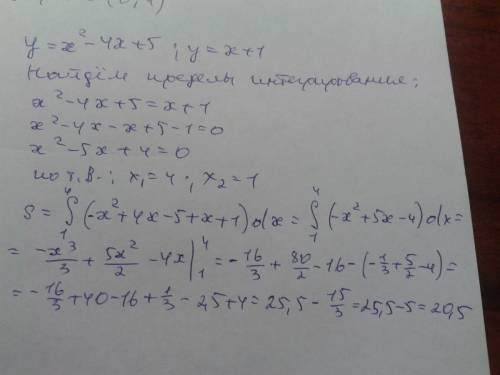 y = x² - 4x + 5 ; y = x + 1
Найдём пределы интегрирования;
x² - 4x + 5 = x + 1
x² - 4x - x + 5 - 1 = 0
x² - 5x + 4 = 0
по т. В. : x₁ = 4 ; x₂ = 1
S = ∫₁⁴ (-x² + 4x - 5 + x + 1) dx = ∫₁⁴ (-x² + 5x - 4) dx =
= -x³/3 + 5x²/2 - 4x |₁⁴ = - 16/3 + 80/2 - 16 - (-1/3 + 5/2 - 4) =
= - 16/3 + 40 - 16 + 1/3 - 2,5 + 4 = 25,5 - 15/3 = 25,5 - 5 = 20,5